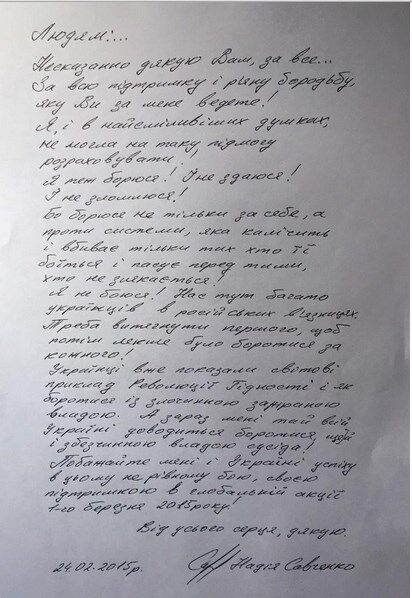 Людям:...
Несказанно дякую Вам, за все...
За всю підтримку і р'яну бородьбу,
яку Ви за мене ведете!
Я, і в найсміливіших думках,
не могла на таку, підмогу
розраховувати!
Я теж борюся! І не здаюся!
І не зломлюся!
Бо борюся не тільки за себе, а
проти системи, яка калічить
і вбиває тільки тих хто її
боїться і пасує перед тими,
хто не злякається!
Я не боюся! Нас тут багато
українців в російських в'язницях.
Треба витягнути першого, щоб
потім легше було боротися за
кожного!
Українці вже показали світові
приклад Революції Гідності і як
боротися із злочинною зажраною
владою. А зараз мені тай всій
Україні доводиться боротися, щей
і збезчинною владою сусіда!
Побажайте мені і Україні успіху
в цьому не рівному бою, своєю
підтримкою в глобальній акції
1-го березня 2015 року!
Від усього серця, дякую.
24.02.2015р. Надія Савченко